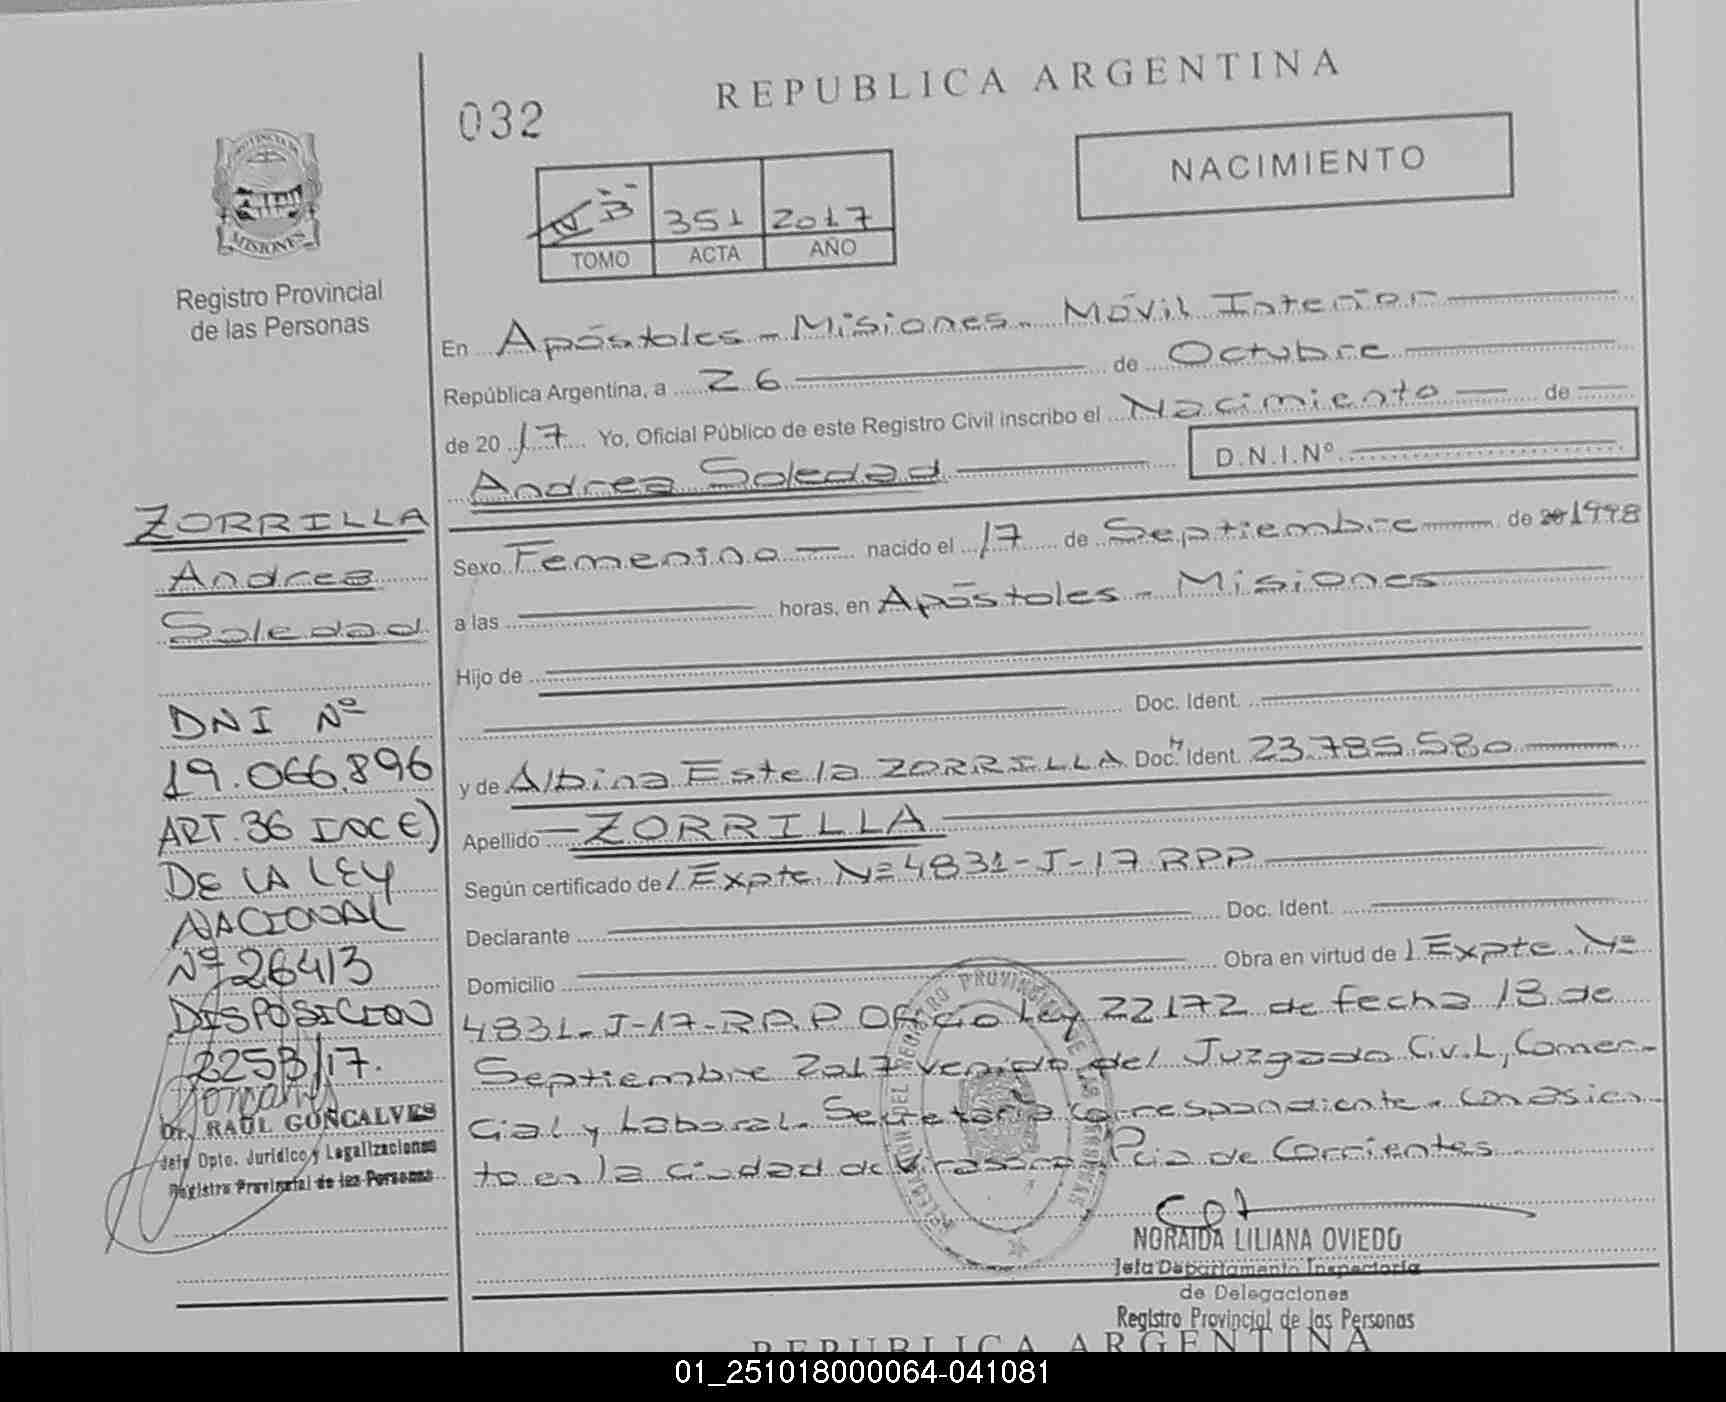 032
REPUBLICA ARGENTINA
NACIMIENTO
351 2017
TOMO ACTA AÑO
PROVINCIA DE
MISIONES
Registro Provincial
de las Personas
ZORRILLA
Andrea
Soledad
DNI Nº
19.066.896
ART. 36 INC E)
DE LA LEY
NACIONAL
Nº 26413
DISPOSICION
2253/17.
Dr. RAUL GONCALVES
Jefe Dpto. Jurídico y Legalizaciones
Registro Provincial de las Personas
En Apóstoles - Misiones - Móvil Interior
República Argentina, a 26 de Octubre
de 2017 Yo, Oficial Público de este Registro Civil inscribo el Nacimiento de
Andrea Soledad D.N.I.Nº
Sexo Femenino nacido el 17 de Septiembre de 1998
a las horas, en Apóstoles - Misiones
Hijo de
Doc. Ident.
y de Albina Estela ZORRILLA Doc. Ident. 23.785.580
Apellido ZORRILLA
Según certificado de Expte. Nº 4831-J-17 RPP
Declarante Doc. Ident.
Domicilio Obra en virtud de Expte. Nº
4831-J-17-R.P.P Oficio Ley 22172 de fecha 13 de
Septiembre 2017 venido del Juzgado Civil, Comer-
cial y Laboral. Secretaria Correspondiente. Con asien-
to en la ciudad de Virasoro Pcia de Corrientes
NORAIDA LILIANA OVIEDO
Jefa Departamento Inspectoría
de Delegaciones
Registro Provincial de las Personas
REPUBLICA ARGENTINA
01_251018000064-041081